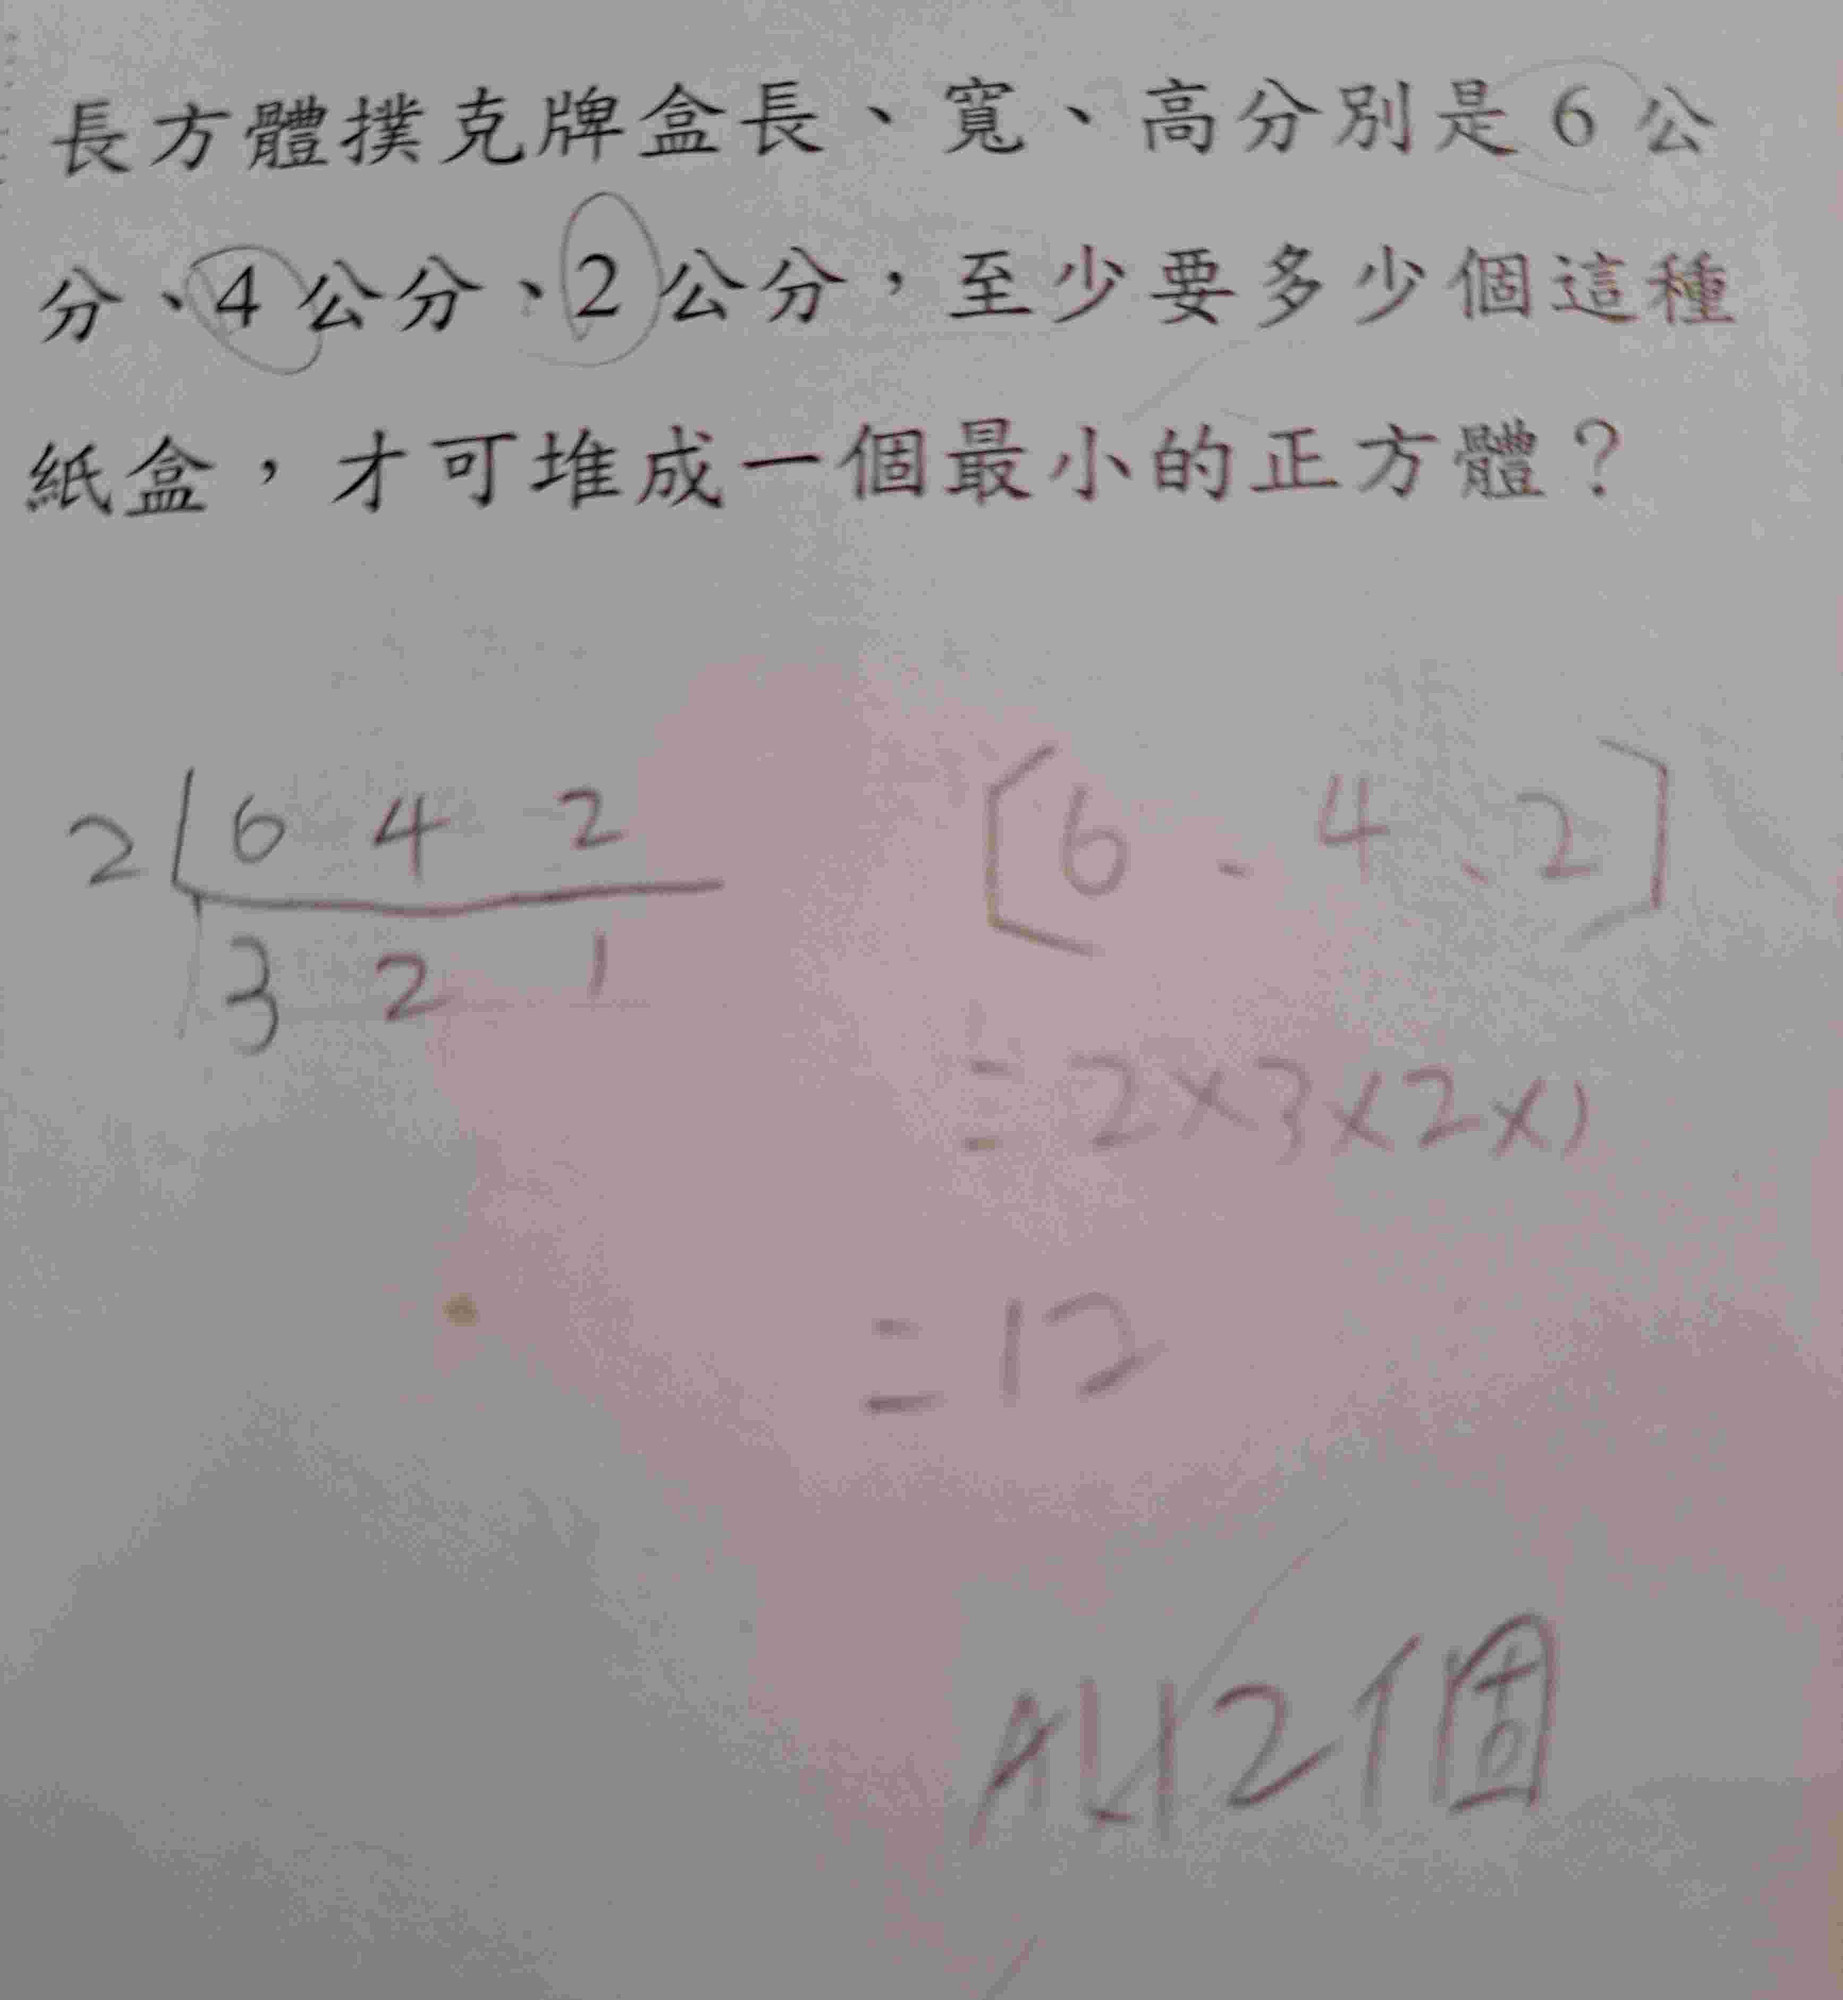 長方體撲克牌盒長、寬、高分別是6公
分、4公分、2公分，至少要多少個這種
紙盒，才可堆成一個最小的正方體？
2 6 4 2
3 2 1
[6、4、2]
=2×3×2×1
=12
A:12個